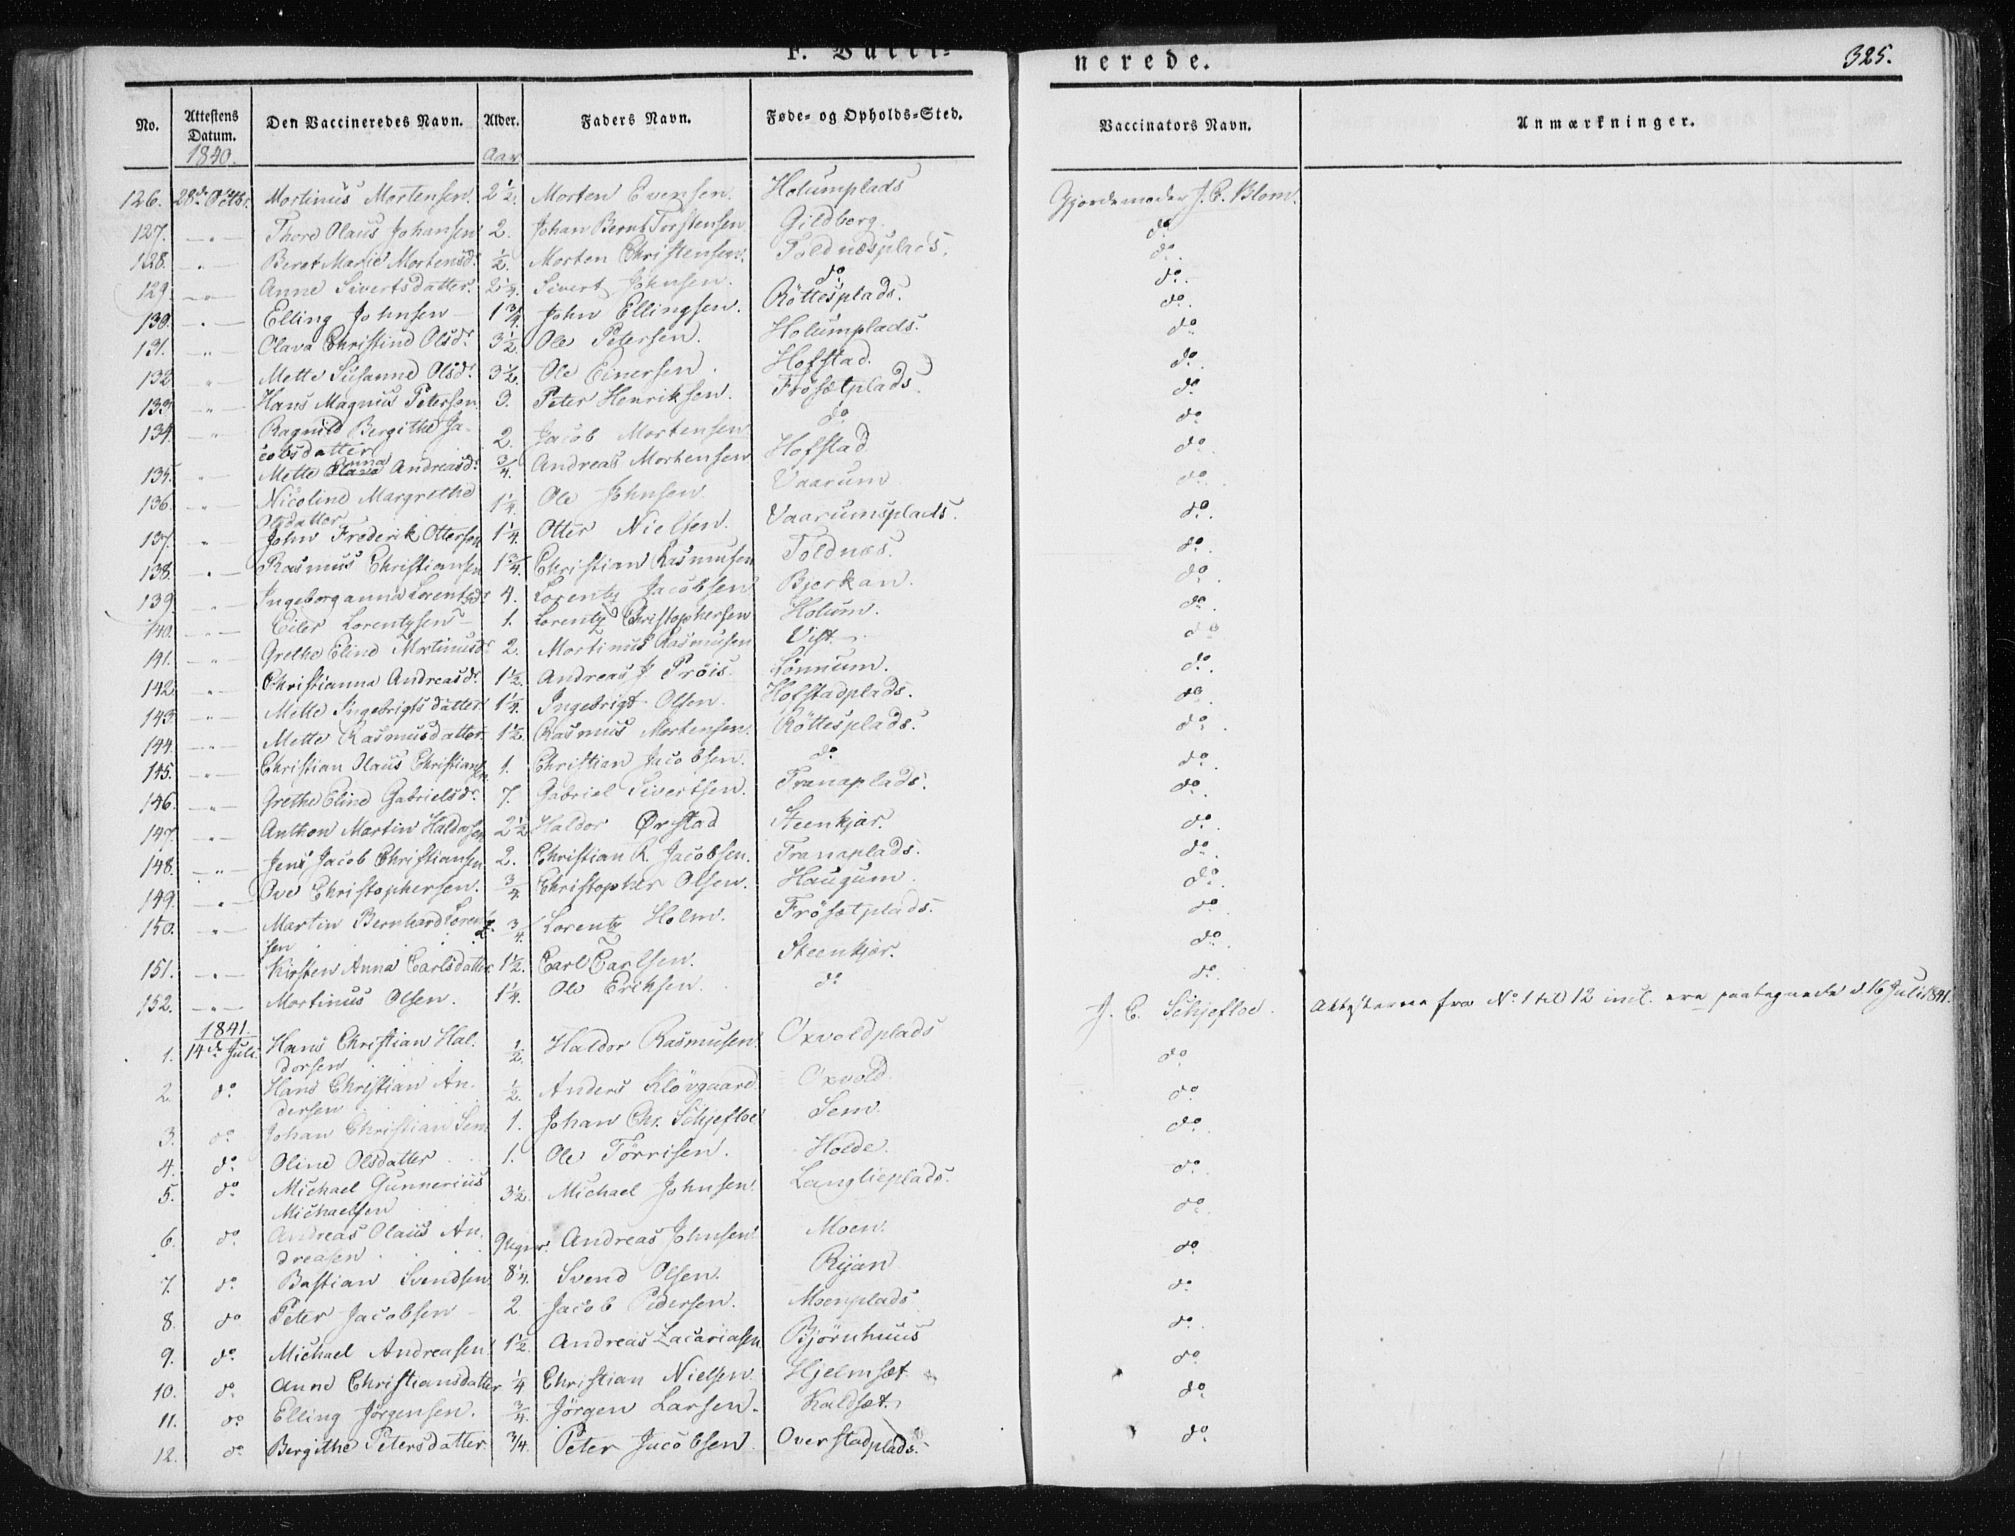 F. Vacci-
nerede.
325.
No. Attestens Datum. Den Vaccineredes Navn. Alder. Faders Navn. Føde- og Opholds-Sted. Vaccinators Navn. Anmærkninger.
1840. Aar
126. 28de Octbr. Martinus Mortensen. 2 1/2. Morten Evensen. Holumplads Gjordemoder J. C. Blom.
127. —"— Thore Olaus Johansen 2. Johan Bernt Torstensen Gildberg. do.
128. —"— Beret Marie Mortensdr. 1/2. Morten Christensen. Toldnæsplads. do.
129. —"— Anne Sivertsdatter. 2 1/4. Sivert Johnsen. do. do.
130. —"— Elling Johnsen 1 3/4. John Ellingsen. Röttesplads. do.
131. —"— Olava Christine Olsdr. 3 1/2. Ole Petersen. Holumplads. do.
132 —"— Mette Susanne Olsdr. 3 1/2. Ole Einersen. Hofstad. do.
133. —"— Hans Magnus Petersen 3. Peter Henriksen. Frösetplads. do.
134. —"— Ragnild Bergithe Ja-
cobsdatter 2. Jacob Mortensen do. do.
135. —"— Mette Andreasdr. 3/4. Andreas Mortensen Hofstad do.
136. —"— Nicoline Margrethe
Olsdatter 1 1/4. Ole Johnsen Vaarum do.
137. —"— John Frederik Ottersen 1 1/4. Otter Nielsen. Vaarumsplads. do.
138. —"— Rasmus Christiansen 1 3/4. Christian Rasmusen Toldnæs. do.
139. —"— Ingeborganna Lorentzdr. 4. Lorentz Jacobsen Bjerkan. do.
140. —"— Eiler Lorentzsen 1. Lorentz Christophersen Holum. do.
141. —"— Grethe Eline Martinusdr. 2. Martinus Rasmusen Vist do
142. —"— Christianna Andreasdr. 1 1/2. Andreas J. Próis. Lönnum. do.
143. —"— Mette Ingebrigtsdatter 1 1/4. Ingebrigt Olsen. Hofstadplads. do.
144. —"— Mette Rasmusdatter 1 1/2. Rasmus Mortensen. Röttesplads. do.
145. —"— Christian Olaus Christiansen 1. Christian Jacobsen. do. do.
146. —"— Grethe Eline Gabrielsdr. 7. Gabriel Sivertsen. Tranaplads. do.
147. —"— Anthon Martin Haldorsen 2 1/2 Haldor Ørstad Steenkjær. do.
148. —"— Jens Jacob Christiansen 2. Christian R. Jacobsen. Tranaplads. do.
149. —"— Ove Christophersen. 3/4 Christopher Olsen. Haugum. do.
150. —"— Martin Bernhard Lorentz-
sen 3/4. Lorentz Holm. Frösetplads. do.
151. —"— Kirsten Anna Carlsdatter 1 1/2. Carl Carlsen. Steenkjær. do.
152. —"— Martinus Olsen. 1 1/4. Ole Eriksen. do do.
1841.
1. 14de Juli. Hans Christian Hal-
dorsen 1/2. Haldor Rasmusen Oxvoldplads J. C. Schjefloe. Attesterne fra No. 1 til 12 incl. ere paategnede d. 16 Juli 1841.
2. do. Hans Christian An-
dersen 1/2. Anders Klövgaard Oxvold do
3. do Johan Christian Sem 1. Johan Chr. Schjefloe Sem do.
4. do. Oline Olsdatter 1. Ole Törrisen. Holde. do.
5. do. Michael Gunnerius
Michaelsen 3 1/2. Michael Johnsen. Langlieplads. do.
6. do. Andreas Olaus An-
dreasen. Andreas Johnsen Moen. do.
7. do. Bastian Svendsen 8 1/4. Svend Olsen. Ryan do.
8. do Peter Jacobsen 2 Jacob Pedersen. Moenplads do.
9. do. Michael Andreasen 1 1/2. Andreas Zacariasen Bjørnhuus do.
10. do Anne Christiansdatter 1/4 Christian Nielsen Hjelmset do.
11. do Elling Jørgensen. 3/4. Jörgen Larsen. Kaldset do.
12. do. Bergithe Petersdatter 3/4. Peter Jacobsen Overstadplads. do.